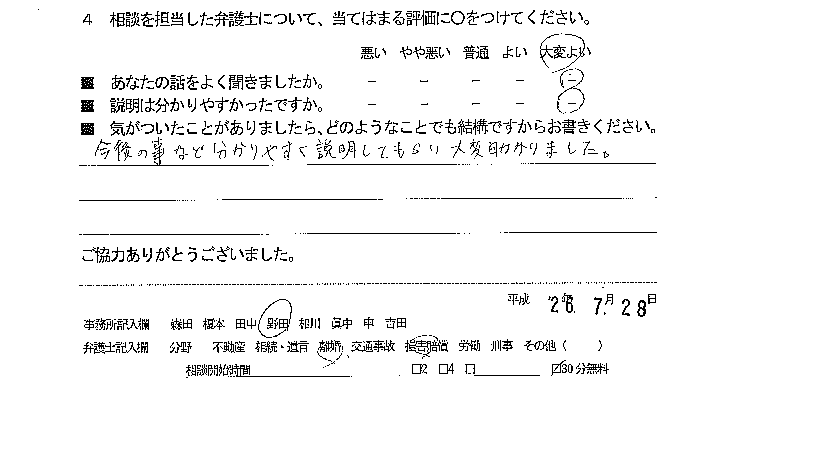 4 相談を担当した弁護士について、当てはまる評価に〇をつけてください。
悪い やや悪い 普通 よい 大変よい
あなたの話をよく聞きましたか。 － － － － －
説明は分かりやすかったですか。 － － － － －
気がついたことがありましたら、どのようなことでも結構ですからお書きください。
今後の事など分かりやすく説明してもらい大変助かりました。
ご協力ありがとうございました。
平成 26年 7月 28日
事務所記入欄 森田 榎本 田中 野田 相川 眞中 申 吉田
弁護士記入欄 分野 不動産 相続・遺言 離婚 交通事故 損害賠償 労働 刑事 その他（ ）
相談開始時間 □2 □4 □ ☑30分無料